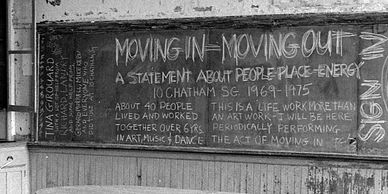 MOVING IN - MOVING OUT
A STATEMENT ABOUT PEOPLE-PLACE-ENERGY
10 CHATHAM SQ 1969-1975
ABOUT 40 PEOPLE
LIVED AND WORKED
TOGETHER OVER 6 YRS.
IN ART, MUSIC & DANCE
THIS IS A LIFE WORK MORE THAN
AN ART WORK - I WILL BE HERE
PERIODICALLY PERFORMING
THE ACT OF MOVING IN
TINA GIROUARD
RICHARD LANDRY
SIGN IN